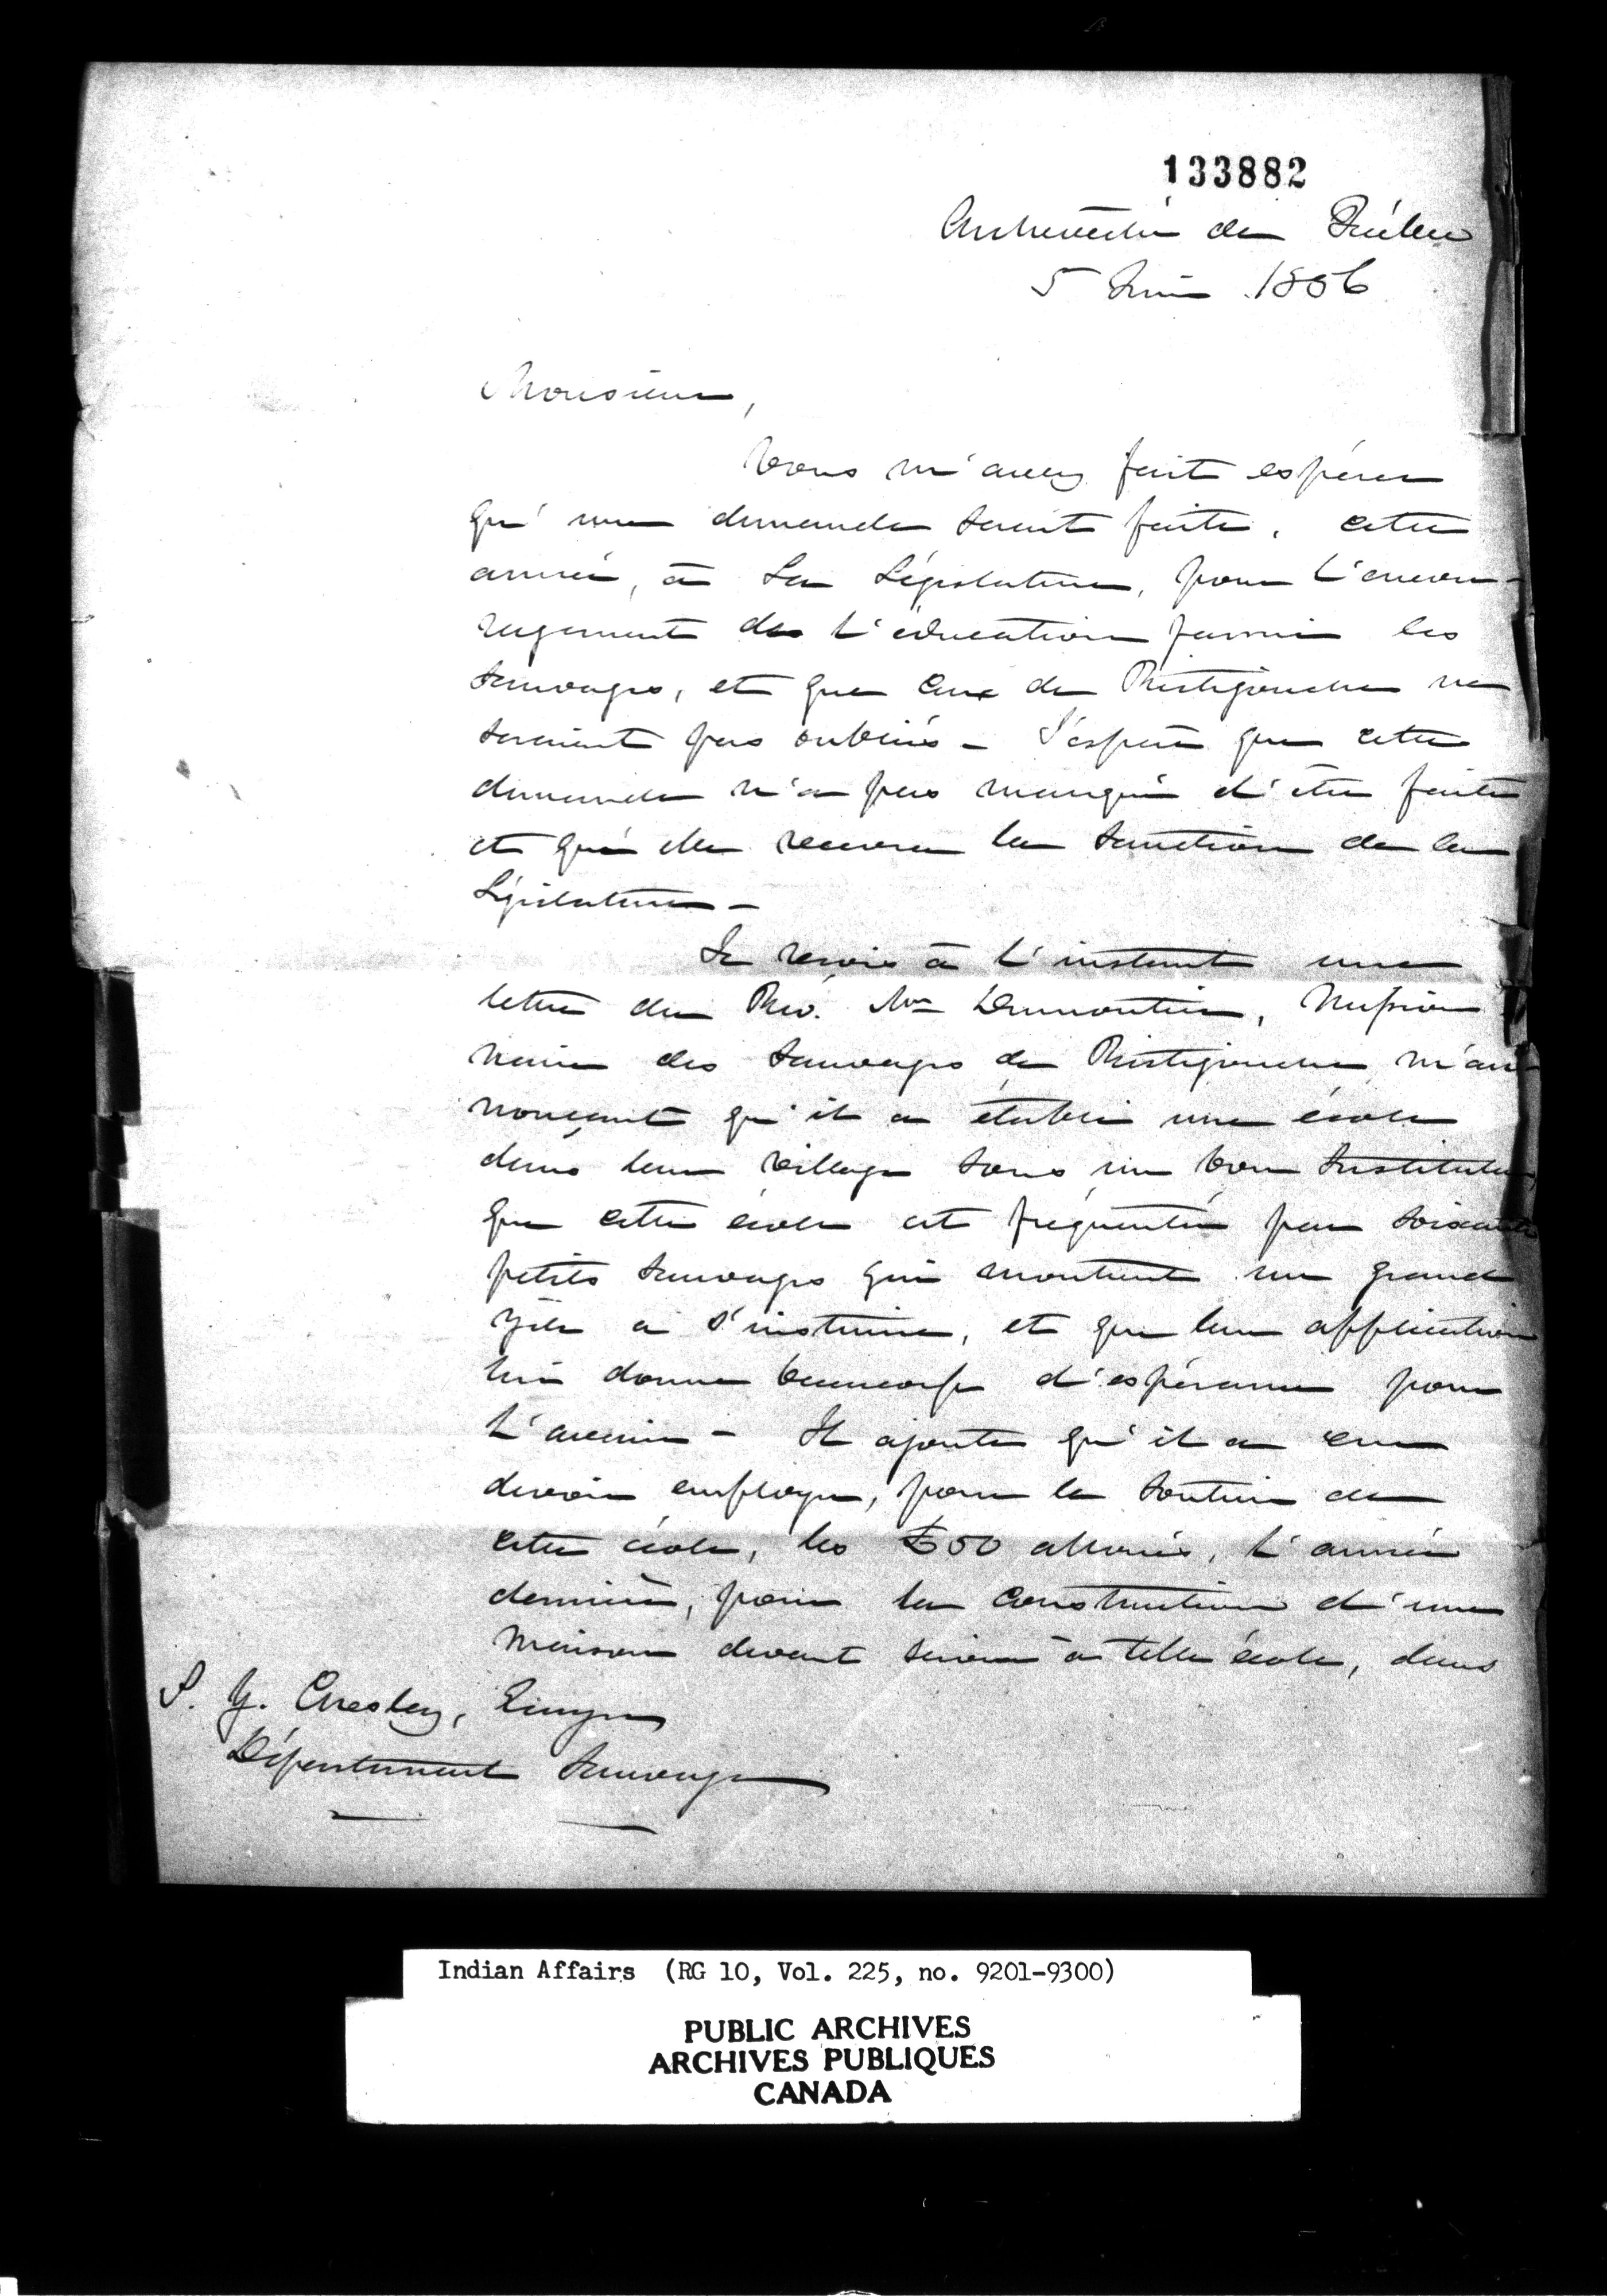 133882
Archevêché de Québec
5 Juin 1856
Monsieur,
Vous m'avez fait espérer
qu'une demande serait faite, cette
année, à la Législature, pour l'encou-
ragement de l'éducation parmi les
Sauvages, et que ceux de Ristigouche ne
seraient pas oubliés - J'espère que cette
demande n'a pas manqué d'être faite
et qu'elle recevra la sanction de la
Législature -
Je reçois à l'instant une
lettre du Rév. Mr Dumontier, Mission-
naire des Sauvages de Ristigouche, m'an-
nonçant qu'il a établi une école
dans leur village sous un bon Instituteur
que cette école est fréquentée par soixante
petits Sauvages qui montrent un grand
zèle à s'instruire, et que leur application
lui donne beaucoup d'espérance pour
l'avenir - Il ajoute qu'il a cru
devoir employer, pour le soutien de
cette école, les £50 alloués, l'année
dernière, pour la construction d'une
maison devant servir à telle école, dans
S. Y. Chesley, Ecuyer
Département Sauvage
Indian Affairs (RG 10, Vol. 225, no. 9201-9300)
PUBLIC ARCHIVES
ARCHIVES PUBLIQUES
CANADA